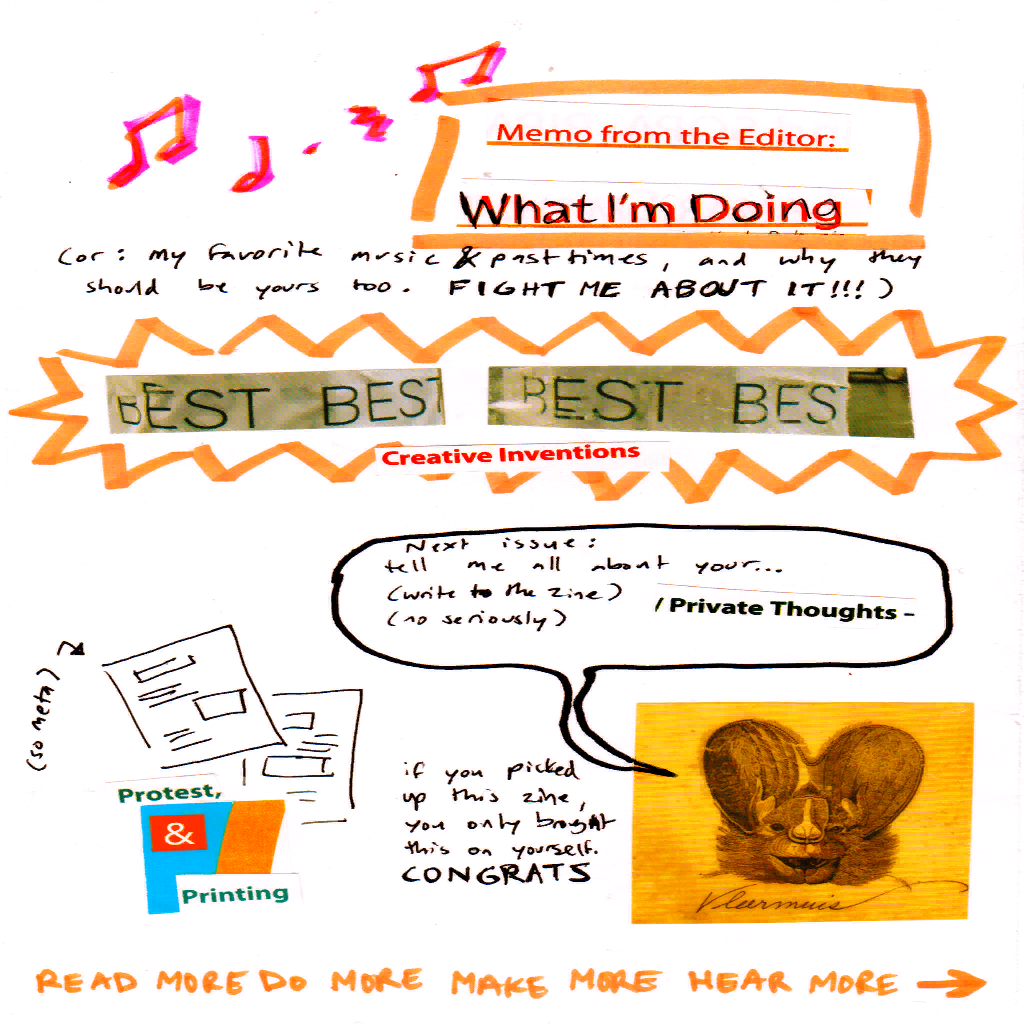 Memo from the Editor:
What I'm Doing
(or: my favorite music & pasttimes, and why they
should be yours too. FIGHT ME ABOUT IT!!!)
BEST BEST BEST BES
Creative Inventions
Next issue:
tell me all about your...
(write to the zine)
(no seriously)
/ Private Thoughts –
(so meta)
Protest,
&
Printing
if you picked
up this zine,
you only brought
this on yourself.
CONGRATS
Vleermuis
READ MORE DO MORE MAKE MORE HEAR MORE →